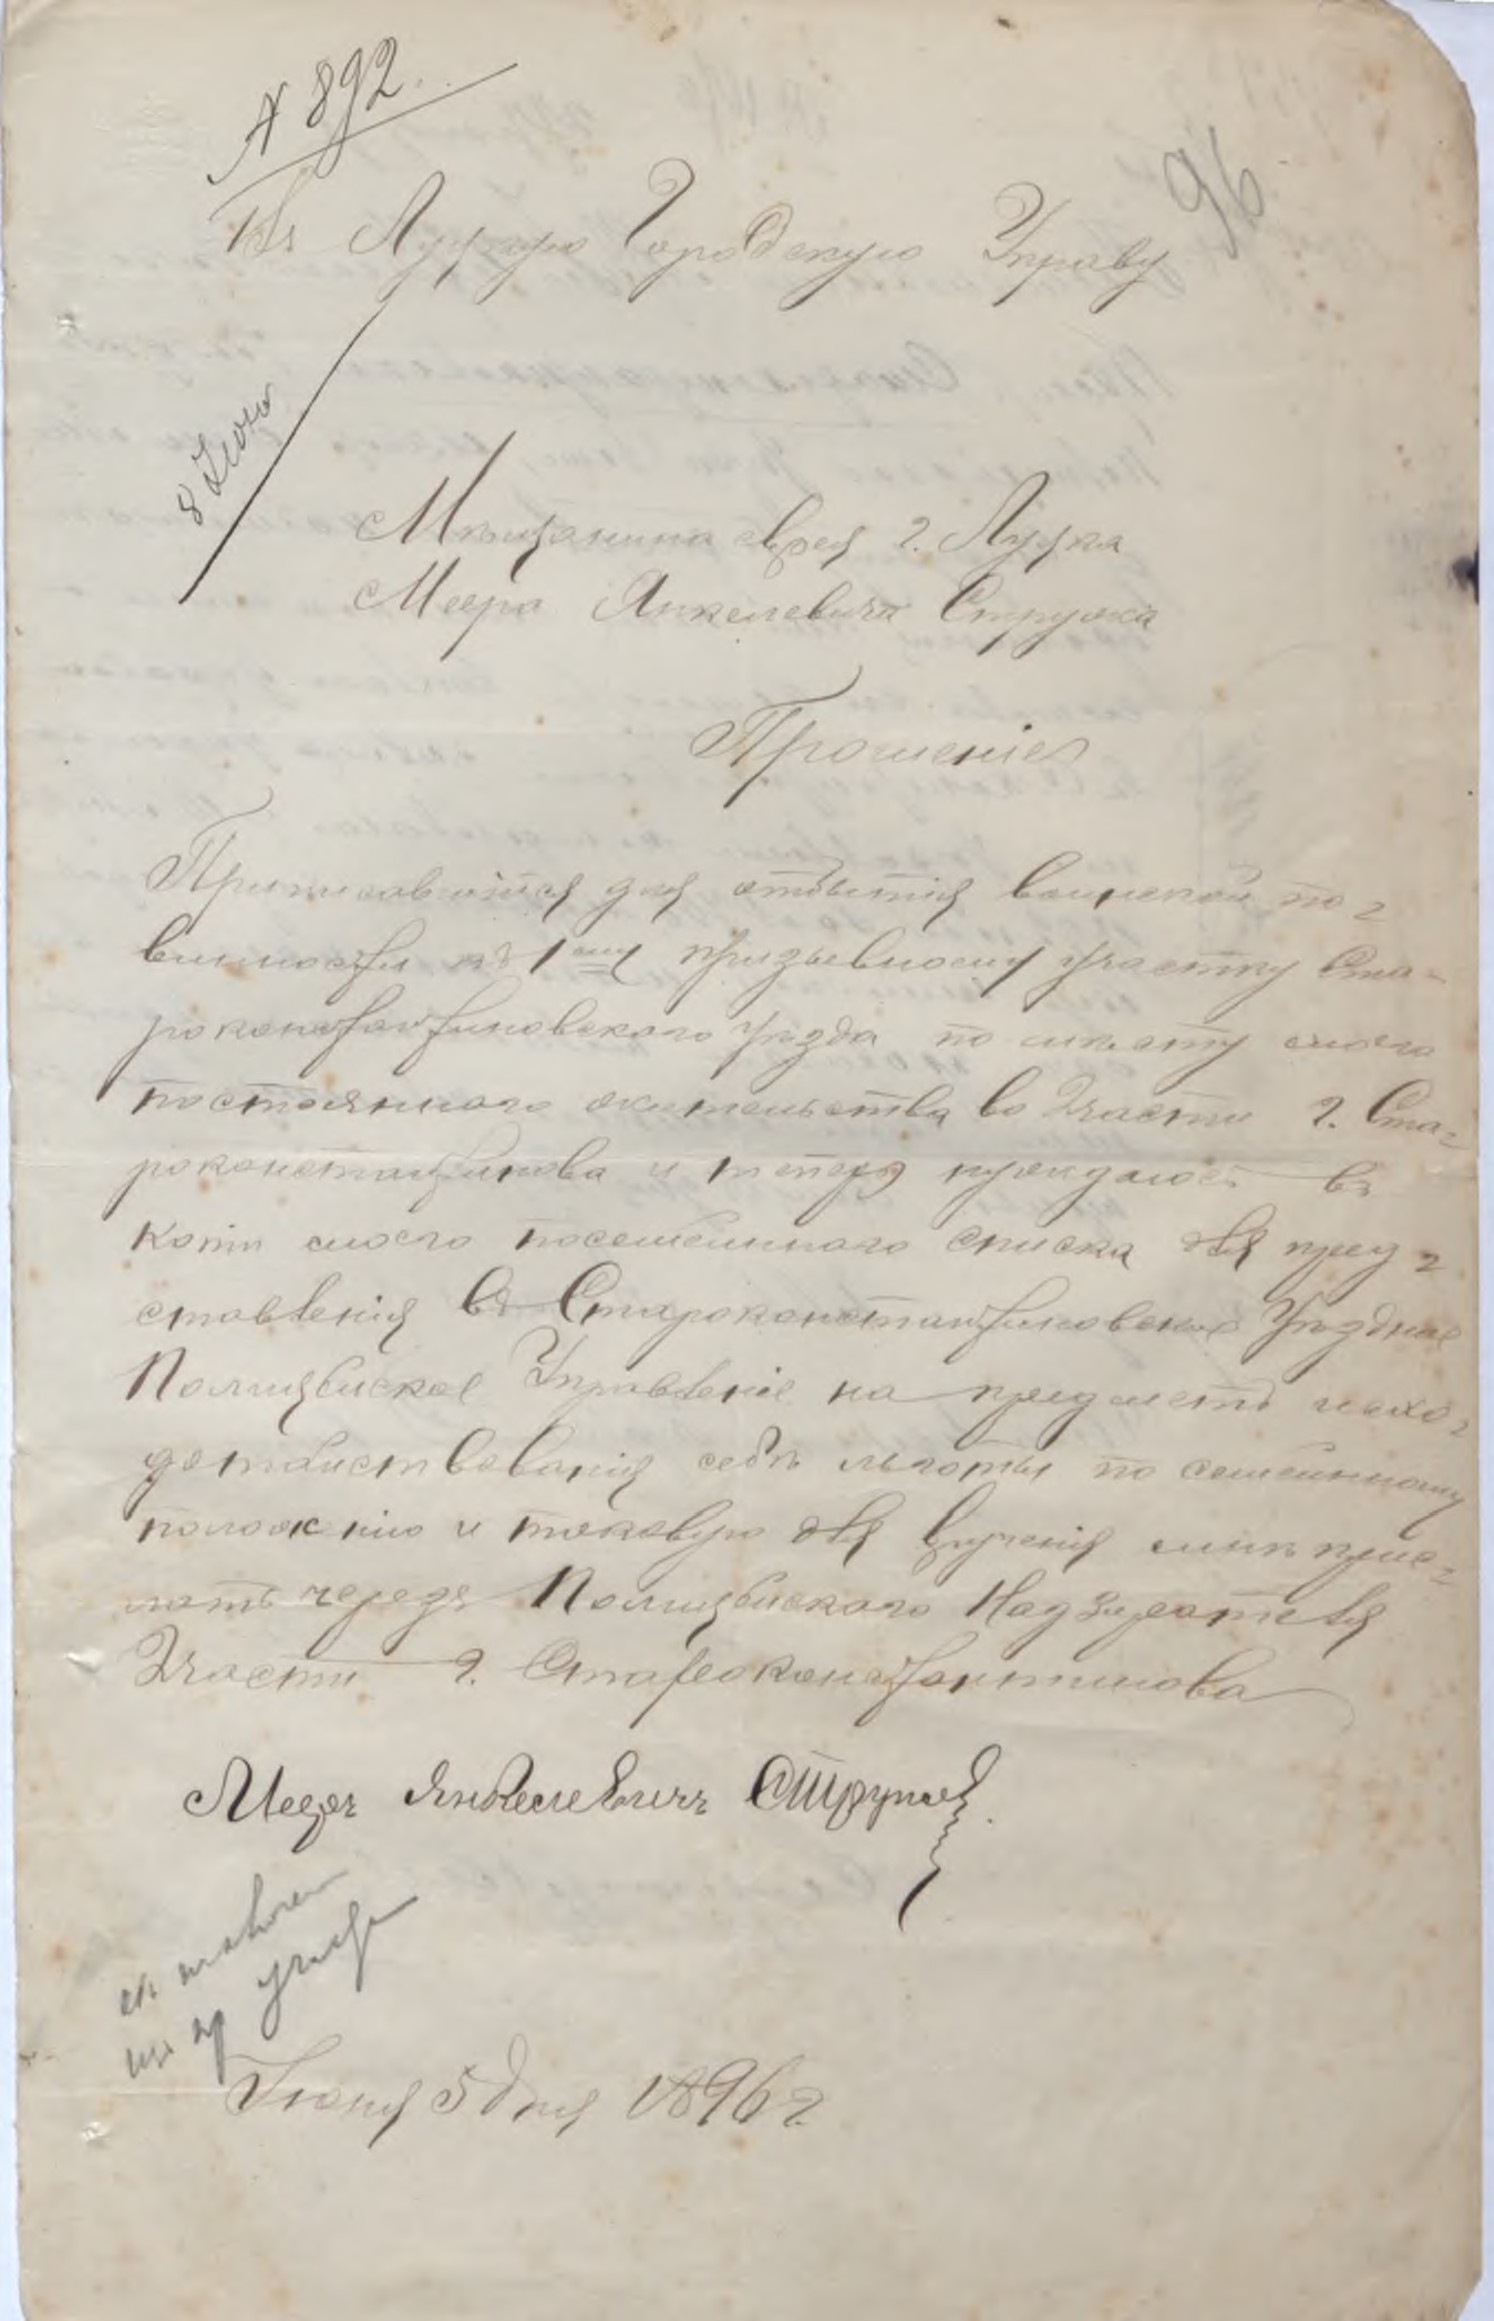 № 892.
96
Въ Луцкую Городскую Управу
8 Іюня
Мѣщанина еврея г. Луцка
Меера Янкелевича Струка
Прошеніе
Приписавшійся для отбытія воинской по-
винности къ 1ому призывному участку Ста-
роконстантиновского уѣзда по мѣсту моего
постояннаго жительства во 2 части г. Ста-
роконстантинова и теперъ нуждаюсь въ
копіи моего посемейнаго списка для пред-
ставленія въ Староконстантиновское Уѣздное
Полицейское Управленіе на предметъ исхо-
датайствованія себѣ льготы по семейному
положенію и таковую для врученія мнѣ прис-
лать чередъ Полицейского Надзирателя
2 части г. Староконстантинова
Меер Янкелевичъ
Іюня 5 дня 1896 г.